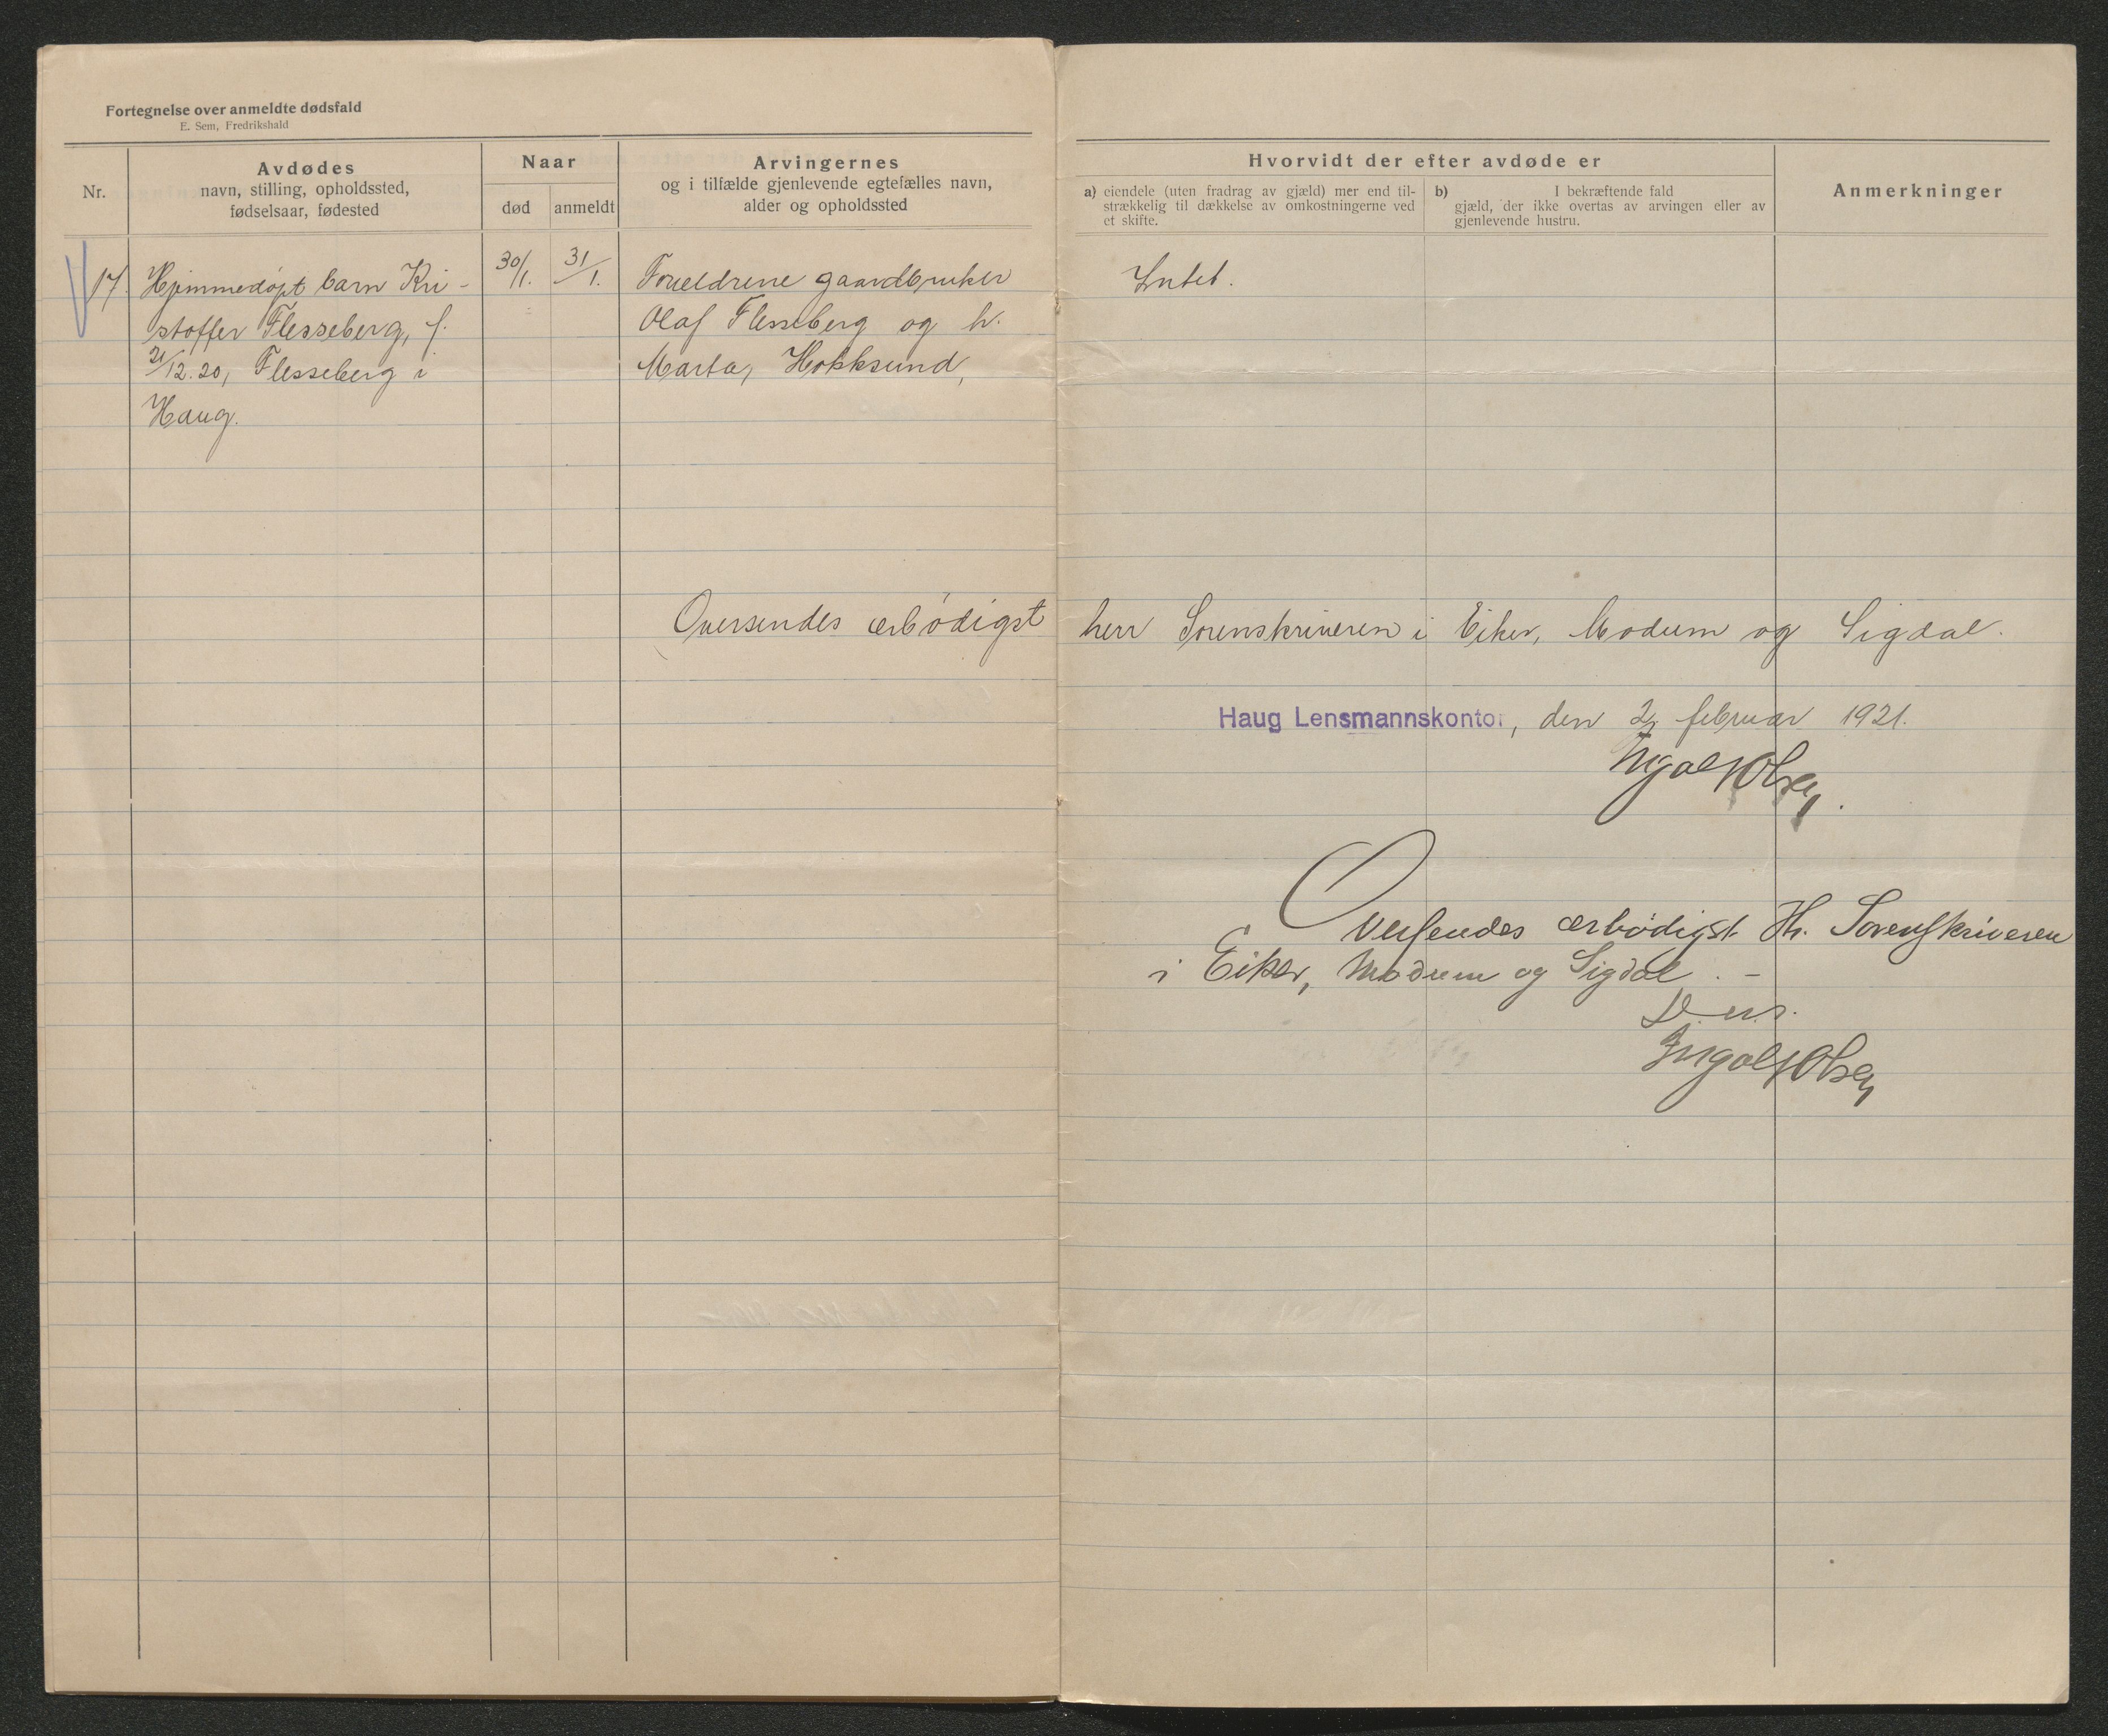 Fortegnelse over anmeldte dødsfald
E. Sem, Fredrikshald
Nr.
Avdødes
navn, stilling, opholdssted,
fødselsaar, fødested
Naar
død
anmeldt
Arvingernes
og i tilfælde gjenlevende egtefælles navn,
alder og opholdssted
Hvorvidt der efter avdøde er
a) eiendele (uten fradrag av gjæld) mer end til-
strækkelig til dækkelse av omkostningerne ved
et skifte.
b) I bekræftende fald
gjæld, der ikke overtas av arvingen eller av
gjenlevende hustru.
Anmerkninger
17.
Hjemmedøpt barn Kri-
stoffer Flesseberg, f.
21/12.20, Flesseberg i
Haug.
30/1.
31/1.
Foreldrene gaardbruker
Olaf Flesseberg og h.
Marta, Hokksund,
Intet.
Oversendes ærbødigst herr Sorenskriveren i Eiker, Modum og Sigdal.
Haug Lensmannskontor, den 2 februar 1921.
Ingolf Olsen.
Oversendes ærbødigst Hr. Sorenskriveren
i Eiker, Modum og Sigdal. -
D. u. s.
Ingolf Olsen